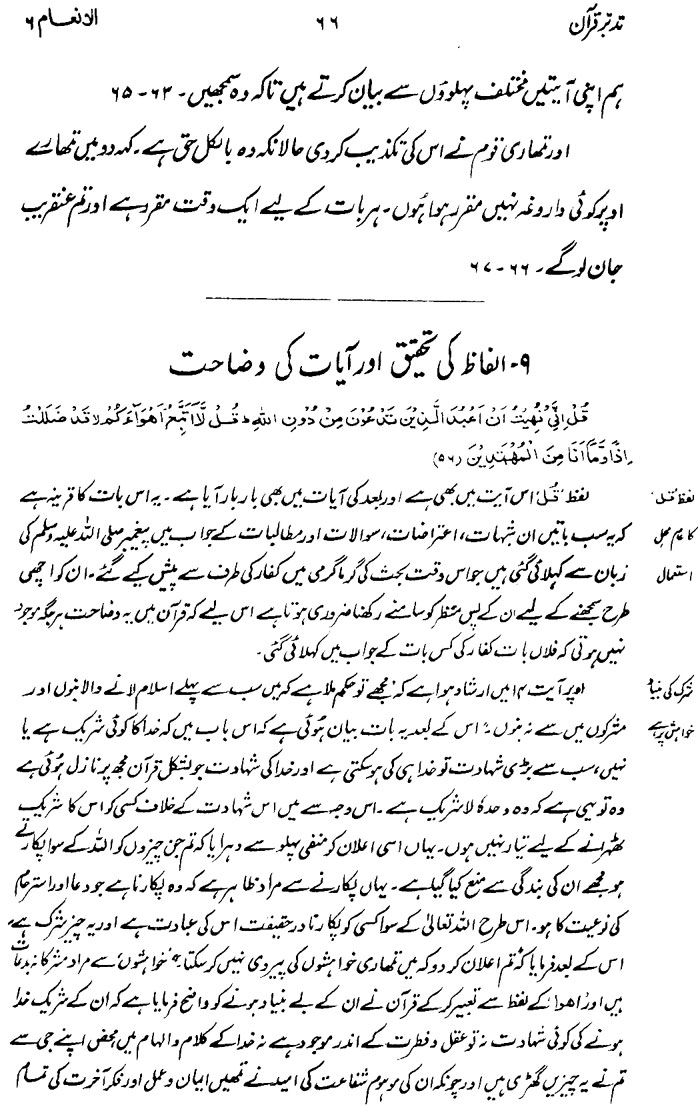 تدبر قرآن ۶۶ الانعام ۶
ہم اپنی آیتیں مختلف پہلوؤں سے بیان کرتے ہیں تاکہ وہ سمجھیں۔ ۶۳-۶۵
اور تمھاری قوم نے اس کی تکذیب کر دی حالانکہ وہ بالکل حق ہے۔ کہہ دو میں تمھارے
اوپر کوئی داروغہ نہیں مقرر ہوا ہوں۔ ہر بات کے لیے ایک وقت مقرر ہے اور تم عنقریب
جان لو گے۔ ۶۶-۶۷
۹- الفاظ کی تحقیق اور آیات کی وضاحت
قُلْ اِنِّیْ نُھِیْتُ اَنْ اَعْبُدَ الَّذِیْنَ تَدْعُوْنَ مِنْ دُوْنِ اللّٰہِ ط قُلْ لَّآ اَتَّبِعُ اَھْوَآءَکُمْ لا قَدْ ضَلَلْتُ
اِذًا وَّمَآ اَنَا مِنَ الْمُھْتَدِیْنَ (۵۶)
لفظ 'قُل'
کا عام محل
استعمال
لفظ 'قُل' اس آیت میں بھی ہے اور بعد کی آیات میں بھی بار بار آیا ہے۔ یہ اس بات کا قرینہ ہے
کہ یہ سب باتیں ان شبہات، اعتراضات، سوالات اور مطالبات کے جواب میں پیغمبر صلی اللہ علیہ وسلم کی
زبان سے کہلائی گئی ہیں جو اس وقت بحث کی گرما گرمی میں کفار کی طرف سے پیش کیے گئے۔ ان کو اچھی
طرح سمجھنے کے لیے ان کے پس منظر کو سامنے رکھنا ضروری ہوتا ہے اس لیے کہ قرآن میں یہ وضاحت ہر جگہ موجود
نہیں ہوتی کہ فلاں بات کفار کی کس بات کے جواب میں کہلائی گئی۔
شرک کی بنیاد
خواہش پر ہے
اوپر آیت ۱۴ میں ارشاد ہوا ہے کہ 'مجھے تو حکم ملا ہے کہ میں سب سے پہلے اسلام لانے والا بنوں اور
مشرکوں میں سے نہ بنوں'۔ اس کے بعد یہ بات بیان ہوئی ہے کہ اس باب میں کہ خدا کا کوئی شریک ہے یا
نہیں، سب سے بڑی شہادت تو خدا ہی کی ہو سکتی ہے اور خدا کی شہادت جو بشکل قرآن مجھ پر نازل ہوئی ہے
وہ تو یہی ہے کہ وہ وحدہٗ لاشریک ہے۔ اس وجہ سے میں اس شہادت کے خلاف کسی کو اس کا شریک
ٹھہرانے کے لیے تیار نہیں ہوں۔ یہاں اسی اعلان کو منفی پہلو سے دہرایا کہ تم جن چیزوں کو اللہ کے سوا پکارتے
ہو مجھے ان کی بندگی سے منع کیا گیا ہے۔ یہاں پکارنے سے مراد ظاہر ہے کہ وہ پکارنا ہے جو دعا اور استرحام
کی نوعیت کا ہو۔ اس طرح اللہ تعالیٰ کے سوا کسی کو پکارنا درحقیقت اس کی عبادت ہے اور یہ چیز شرک ہے،
اس کے بعد فرمایا کہ 'تم اعلان کر دو کہ میں تمھاری خواہشوں کی پیروی نہیں کر سکتا'۔ 'خواہشوں' سے مراد مشرکانہ بدعات
ہیں اور 'اھوا' کے لفظ سے تعبیر کر کے قرآن نے ان کے بے بنیاد ہونے کو واضح فرمایا ہے کہ ان کے شریک خدا
ہونے کی کوئی شہادت نہ تو عقل و فطرت کے اندر موجود ہے نہ خدا کے کلام و الہام میں محض اپنے جی سے
تم نے یہ چیزیں گھڑی ہیں اور چونکہ ان کی موہوم شفاعت کی امید نے تمھیں ایمان و عمل اور فکر آخرت کی تمام